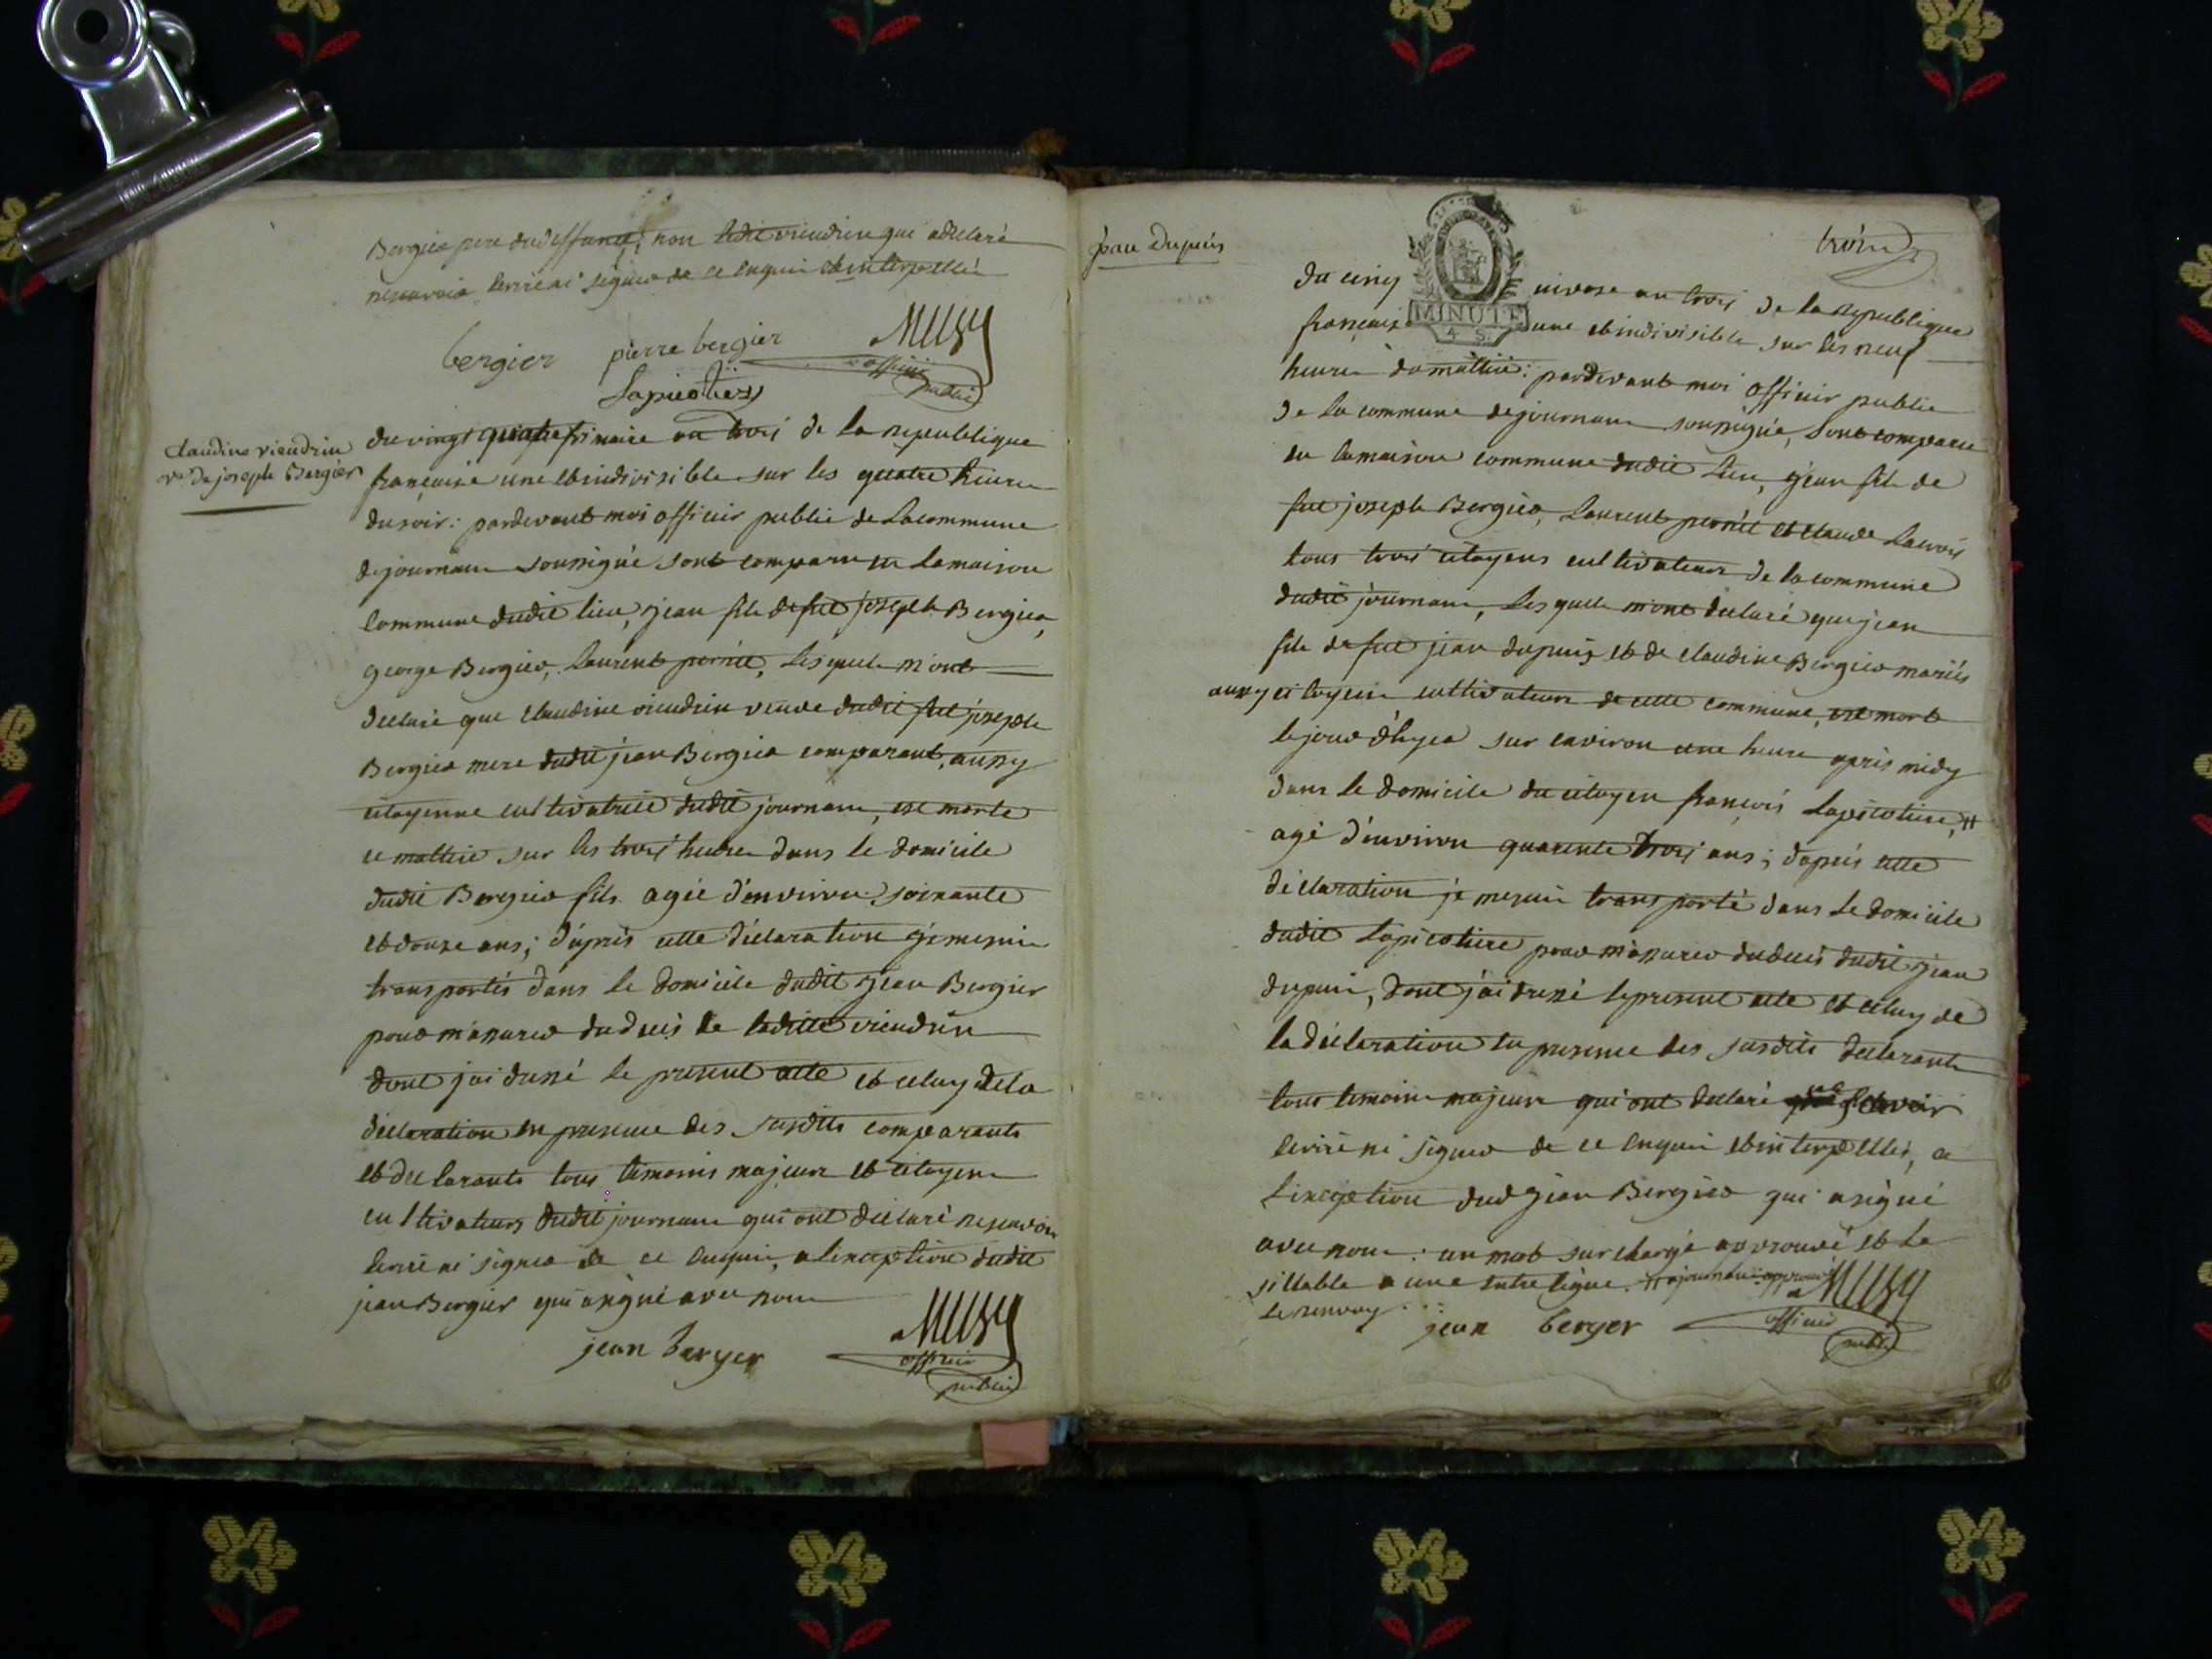 Bergier pere du deffunct, non ledit viendrin qui a declaré
ne scavoir ecrire ni signer de ce enquis et interpellé
bergier pierre bergier Musy
Lapicotiere officier
public
Claudine viendrin
ve de joseph Bergier
du vingt quatre frimaire an trois de la republique
française une et indivisible sur les quatre heures
du soir: pardevant moi officier public de la commune
de journans soussigné sont comparu en la maison
commune dudit lieu, jean fils de fut joseph Bergier,
george Bergier, Laurent pernet, lesquels m'ont
declaré que claudine viendrin veuve dudit fut joseph
Bergier mere dudit jean Bergier comparant, aussy
citoyenne cultivatrice dudit journans, est morte
ce mattin sur les trois heures dans le domicile
dudit Bergier fils agée d'environ soixante
et douze ans; d'après cette déclaration je me suis
transportés dans le domicile dudit jean Bergier
pour m'assurer du deces de laditte viendrin
dont j'ai dressé le present acte et celuy de la
déclaration en presence des susdits comparants
et declarants tous temoins majeurs et citoyens
cultivateurs dudit journans qui ont déclaré ne scavoir
ecrire ni signer de ce enquis, a l'exception dudit
jean Bergier qui a signé avec nous
jean berger Musy
officier
public
jean Dupuis
troisr
MINUTE
4 S.
du cinq nivose an trois de la republique
française une et indivisible sur les neuf
heures du mattin: pardevant moi officier public
de la commune de journans soussigné, sont comparu
en la maison commune dudit lieu, jean fils de
fut joseph Bergier, Laurent pernet et claude Lacroix
tous trois citoyens cultivateurs de la commune
dudit journans, lesquels m'ont déclaré que jean
fils de fut jean dupuis et de claudine Bergier mariés
aussy citoyens cultivateurs de cette commune, est mort
le jour d'hyer sur environ une heure après midy
dans le domicile du citoyen françois Lapicotiere, #
agé d'environ quarente trois ans; d'apres cette
déclaration je me suis transporté dans le domicile
dudit Lapicotiere pour m'assurer du deces dudit jean
dupuis, dont j'ai dressé le present acte et celuy de
la déclaration en presence des susdits declarants
tous temoins majeurs qui ont declaré ne scavoir
ecrire ni signer de ce enquis et interpellés, a
l'exception dud jean Bergier qui a signé
avec nous: un mot surchargé approuvé et la
sillable a une entre ligne. # a journans approuvé
le renvoy. Musy
jean berger officier
public